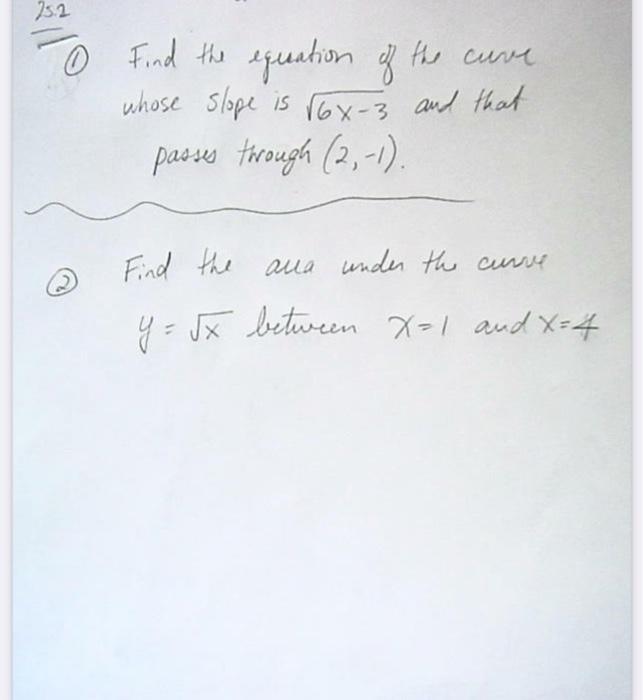 25.2
① Find the equation of the curve
whose slope is √6x-3 and that
passes through (2,-1).
② Find the area under the curve
y = √x between x=1 and x=4